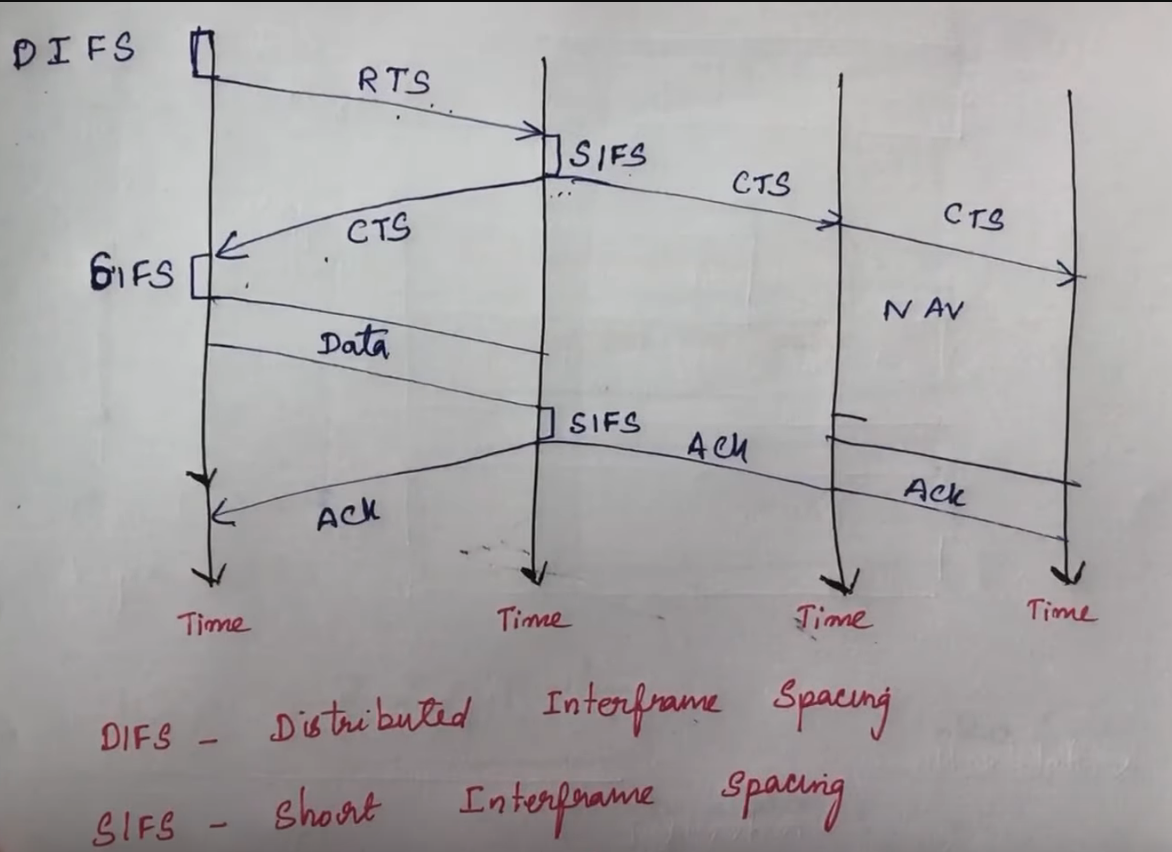 DIFS
RTS
SIFS
CTS
CTS
CTS
SIFS
NAV
Data
SIFS
Ack
Ack
Ack
Time
Time
Time
Time
DIFS - Distributed Interframe Spacing
SIFS - Short Interframe Spacing